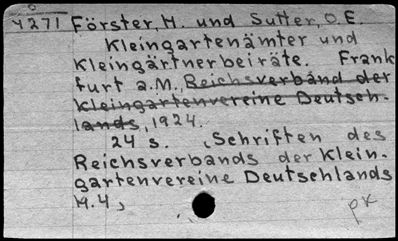 4271 Förster, H. und Sutter, O.E.
Kleingartenämter und
Kleingärtnerbeiräte. Frank
furt a.M., Reichsverband der
Kleingartenvereine Deutsch-
lands, 1924.
24 s. (Schriften des
Reichsverbands der Klein-
gartenvereine Deutschlands
H.4,
PK